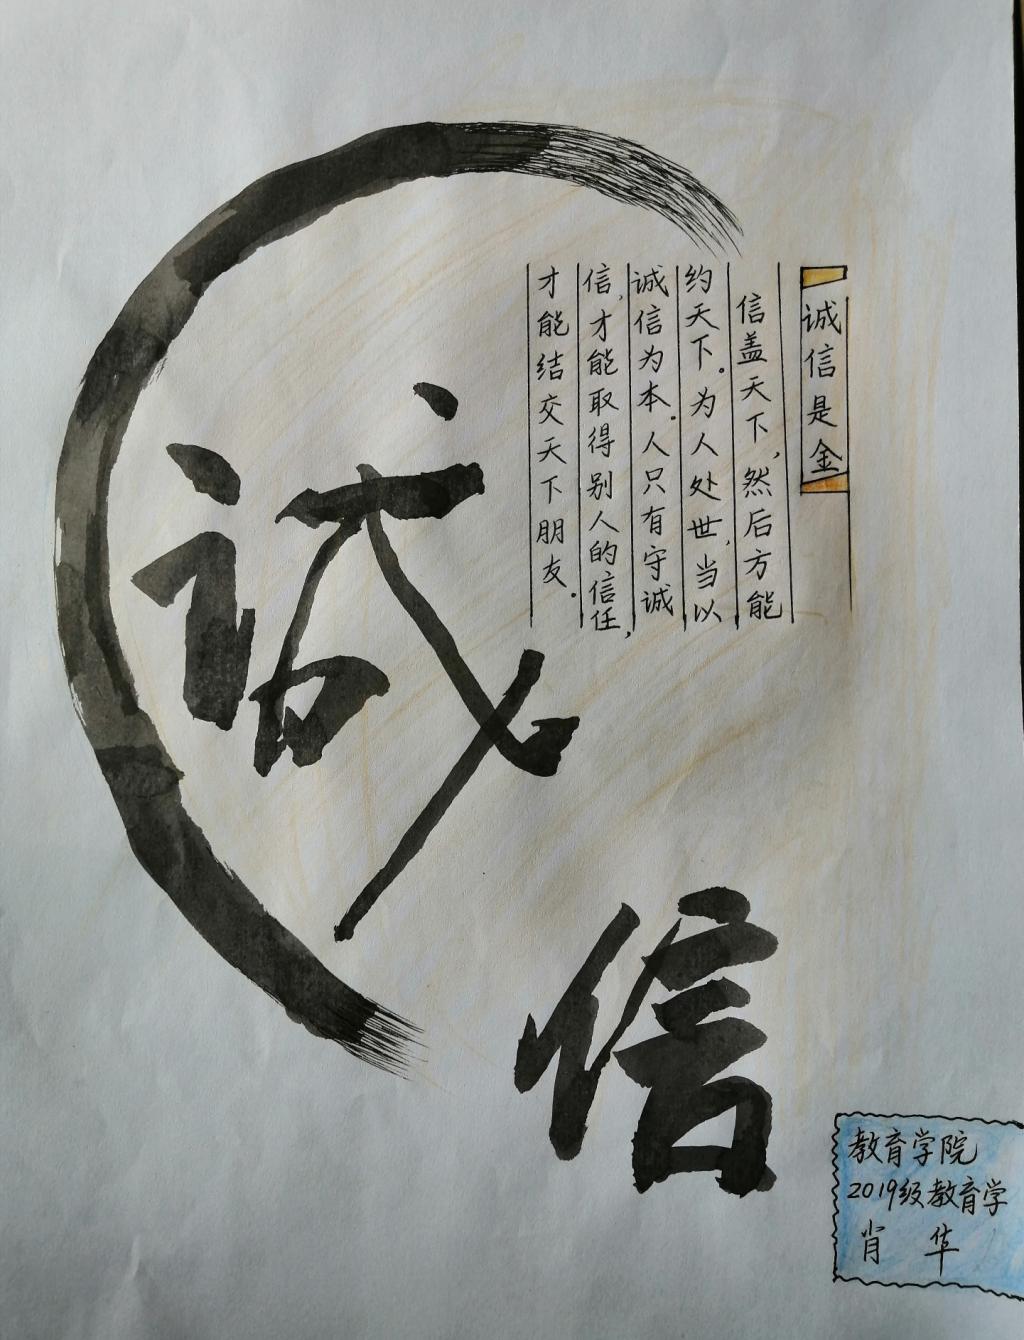 诚信
诚信是金
信盖天下,然后方能
约天下。为人处世,当以
诚信为本.人只有守诚
信,才能取得别人的信任,
才能结交天下朋友.
教育学院
2019级教育学
肖 华